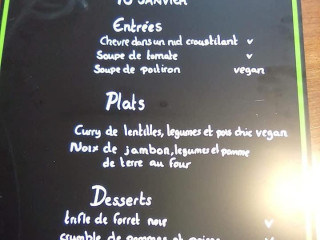 JANVIER
Entrées
Chevre dans un nid croustillant v
Soupe de tomate v
Soupe de potiron vegan
Plats
Curry de lentilles, legumes et pois chic vegan
Noix de jambon, legumes et pomme
de terre au four
Desserts
de forret noir v
crumble de pommes et